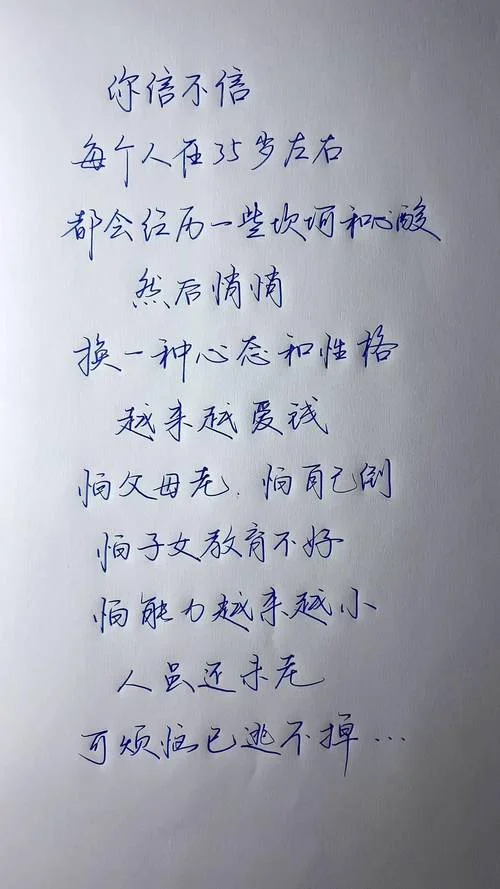 你信不信
每个人在35岁左右
都会经历一些坎坷和心酸
然后悄悄
换一种心态和性格
越来越爱钱
怕父母老，怕自己倒
怕子女教育不好
怕能力越来越小
人虽还未老
可烦恼已逃不掉…